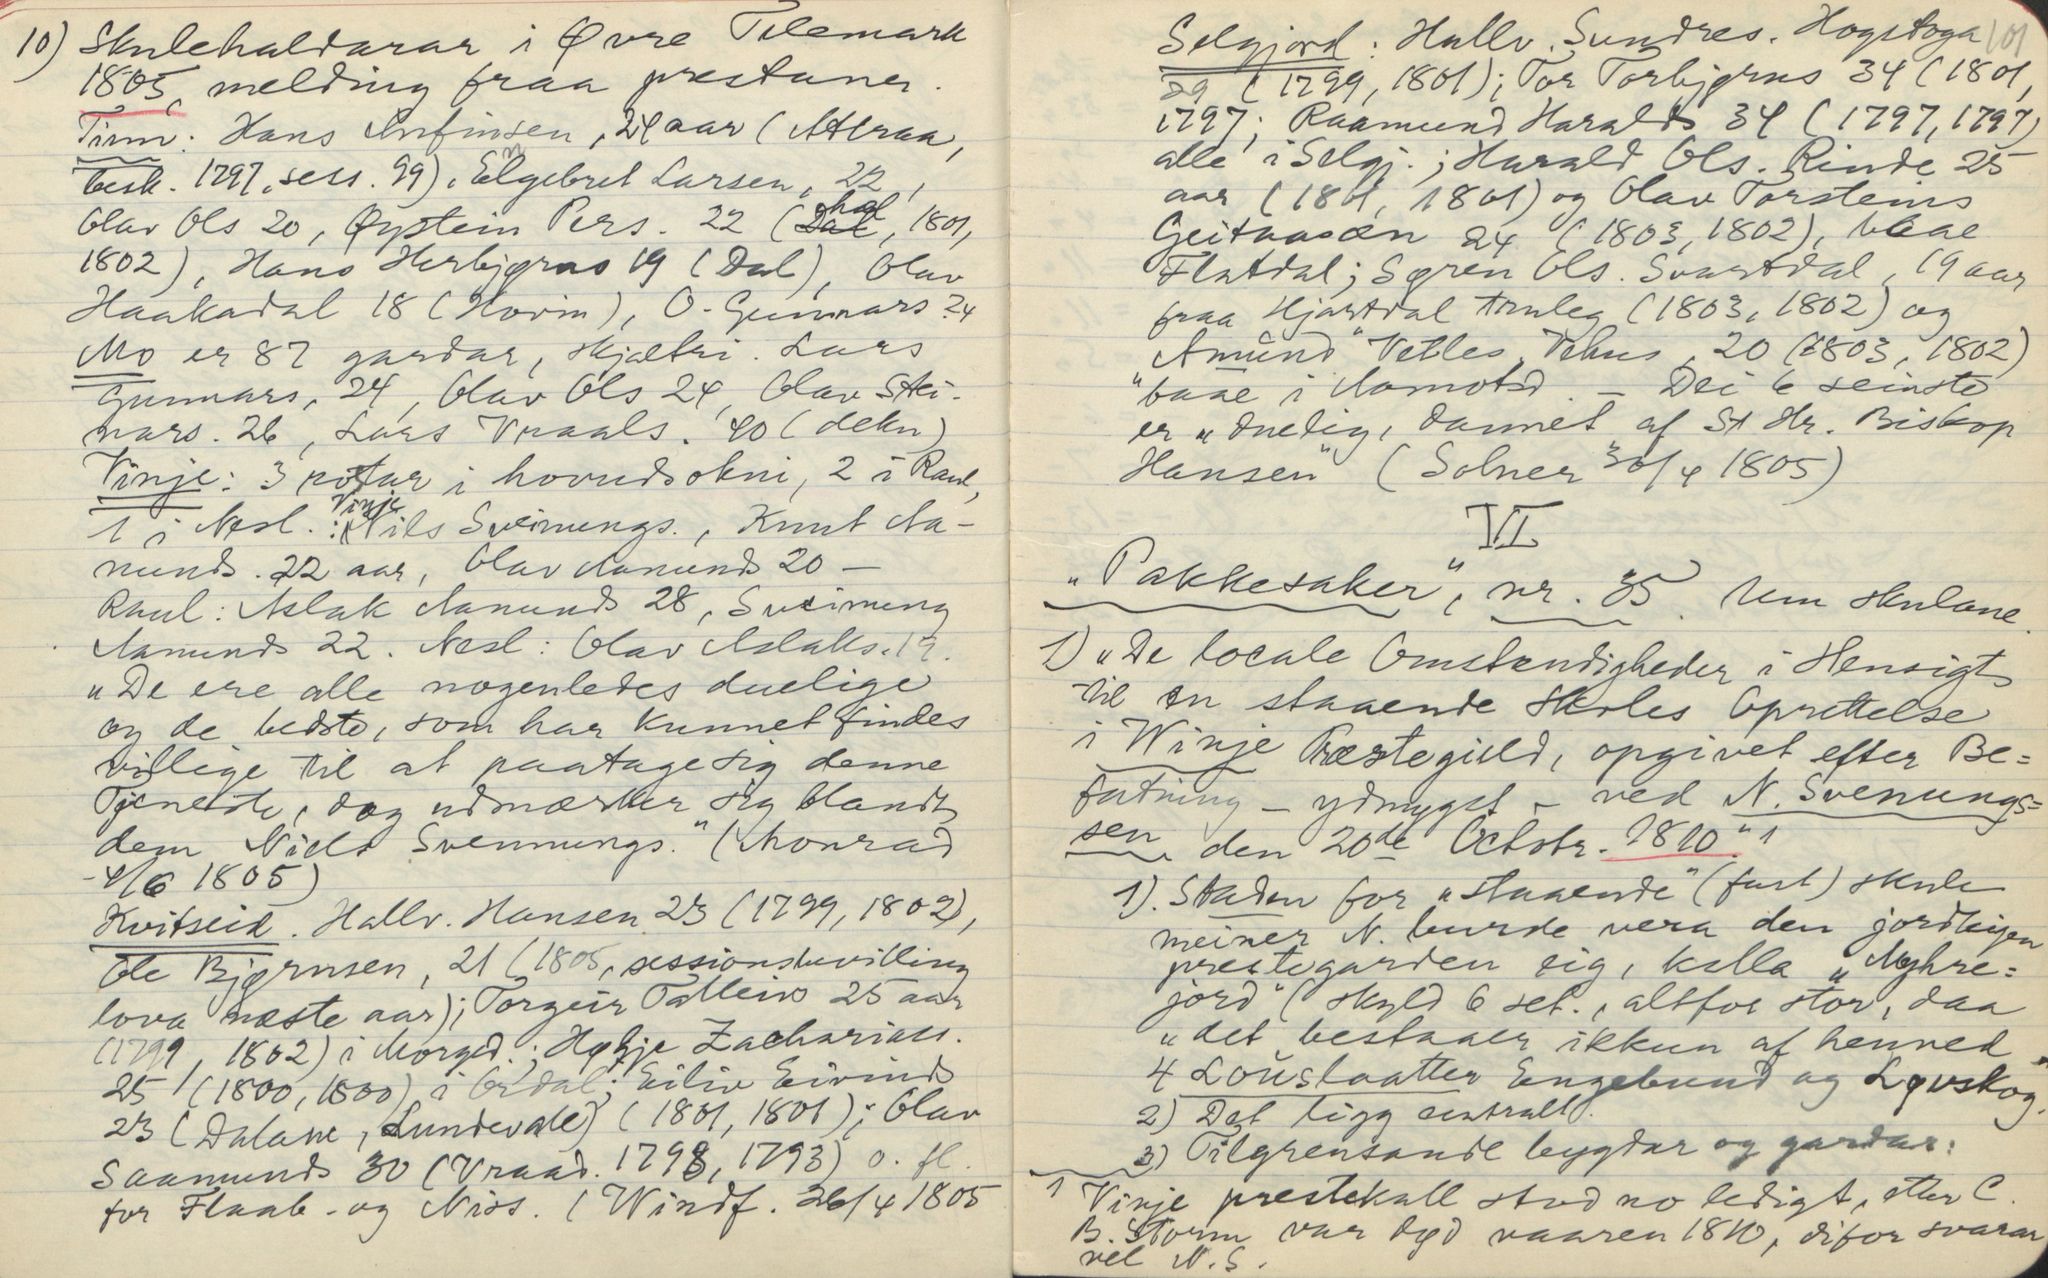 10) Skulehaldarar i Øvre Telemark
1805, melding fraa prestane.
Tinn: Hans Arnfinsen, 24 aar (Attraa,
besk. 1797, sess. 99), Engebret Larsen, 22,
Olav Ols 20, Øystein Pers. 22 (Dal, 1801,
1802), Hans Herbjørns 19 (Dal), Olav
Haakadal 18 (Hovin), O. Gunnars. 24
Mo er 87 gardar, skjætri. Lars
Gunnars, 24, Olav Ols 24, Olav Stei-
nars. 26, Lars Vraals. 40 (dekn)
Vinje: 3 rotur i hovudsokni, 2 i Raul,
1 i Nesl. : Vinje Nils Sveinungs., Knut Aa-
munds. 22 aar, Olav Aamunds 20 –
Raul: Aslak Aamunds 28, Sveinung
Aamunds 22. Nesl: Olav Aslaks. 19.
"De ere alle nogenledes duelige
og de bedste, som har kunnet findes
villige til at paatage sig denne
Tjeneste, dog udmærker sig blandt
dem Niels Svennungs." (Thonrad
4/6 1805)
Kvitseid. Hallv. Hansen 23 (1799, 1802),
Ole Bjørnsen, 21 (1805, sessionsbevilling
lova næste aar); Torgeir Talleivs 25 aar
(1799, 1802) i Morgd.; Høljе Zachariass.
25 (1800, 1800) i Ordal; Eiliv Eivinds
23 (Dalane, Sundevale) (1801, 1801); Olav
Saamunds 30 (Vraad. 1798, 1793) o. fl.
for Flaab- og Niss. (Windf. 26/4 1805
Selgjord: Hallv. Sundres. Hogstoga 101
29 (1799, 1801); Tor Torbjørns 34 (1801,
1797; Raamund Haralds 34 (1797, 1797)
alle i Selgj.; Harald Ols. Rinde 25
aar (1801, 1801) og Olav Torsteins
Geitaasen 24 (1803, 1802), baae
Flatdal; Søren Ols. Svartdal, 19 aar
fraa Hjartdal truleg (1803, 1802) og
Amund Vetles. Vehus, 20 (1803, 1802)
"baae i Aamotsd. – Dei 6 seinste
er "duelig, dannet af St Hr. Biskop
Hansen" (Solner 30/4 1805)
VI
"Pakkesaker", nr. 35. Um skulane.
1) "De locale Omstændigheder i Hensigt
til en staaende Skoles Oprettelse
i Winje Præstegield, opgivet efter Be=
fatning – ydmygst – ved N. Svenungs=
sen den 20de Octobr. 1810." 1
1). Staden for "staaende" (fast) skule
meiner N. burde vera den jordeigen
prestegarden sig, kalla "Myhre=
jord" (skyld 6 set., altfor stor, daa
"det bestaaer ikkun af henved
4 Louslaatter Engebund og Løvskog."
2) Det ligg sentralt.
3) Tilgrensande bygdar og gardar:
1 Vinje prestekall stod no ledigt, etter C.
B. Storm var død vaaren 1810, difor svarar
vel N. S.